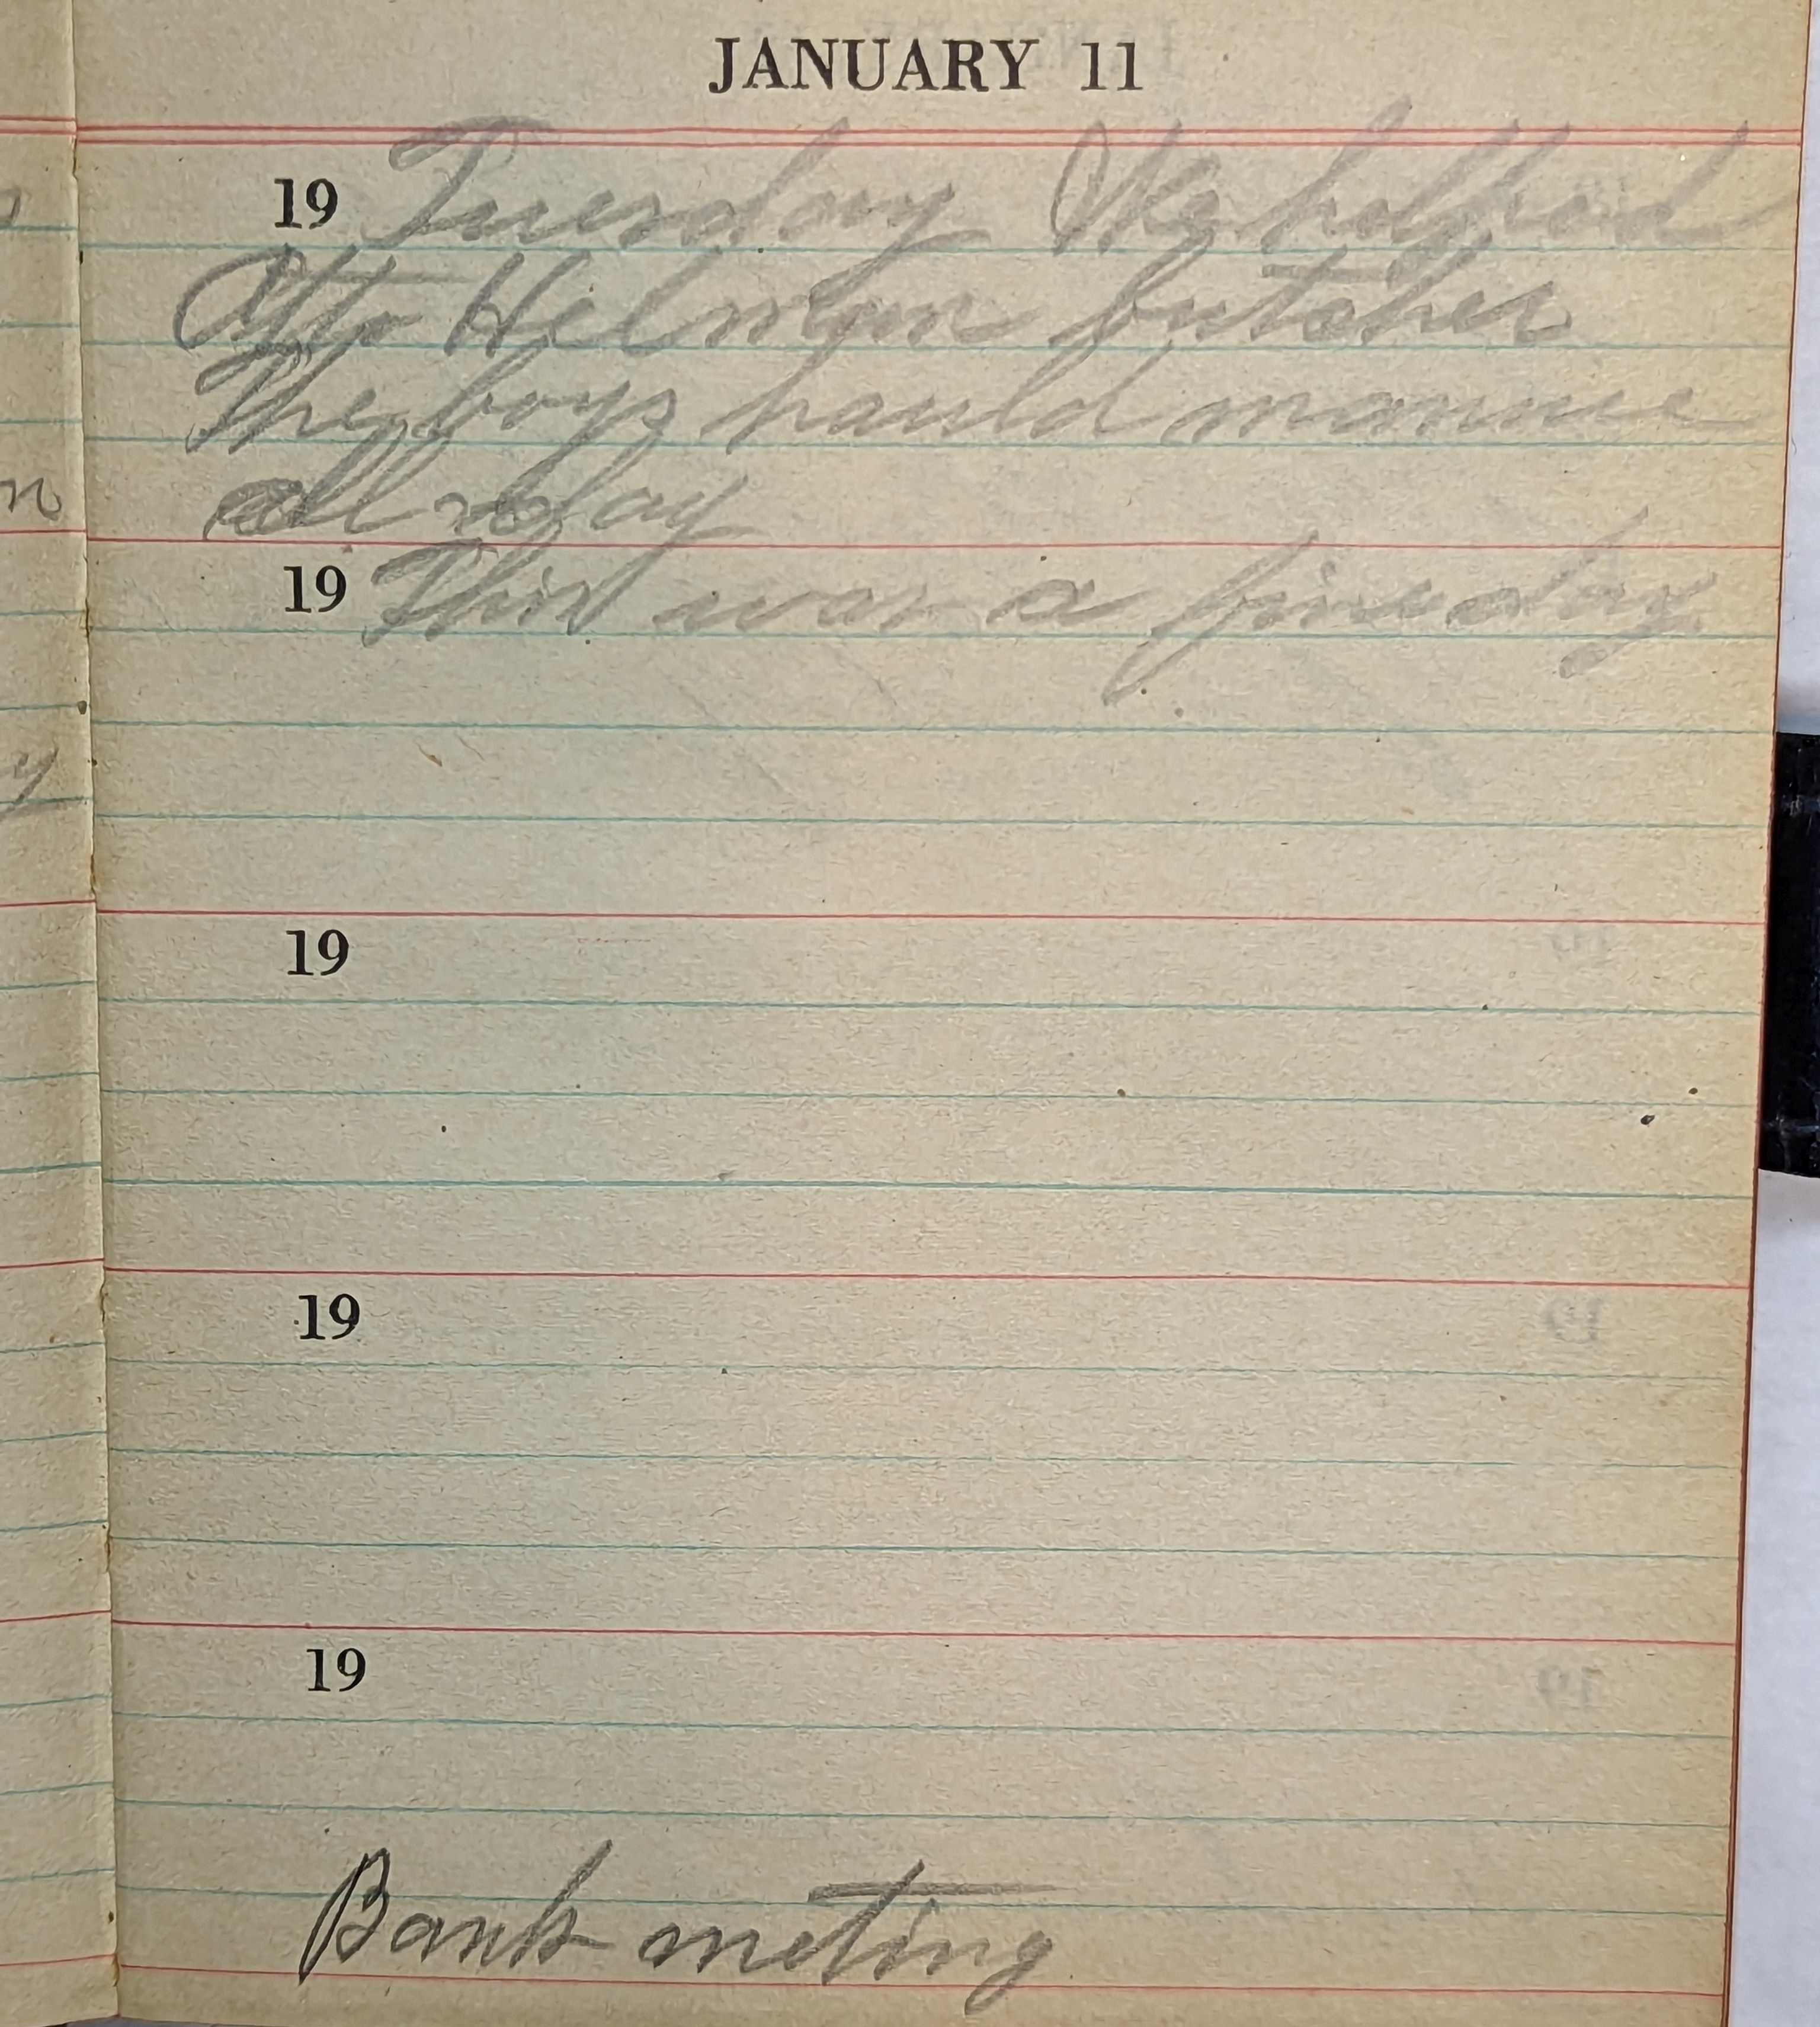 JANUARY 11
19 Tuesday We helped
Otto Hilman butcher
The boys hauld manure
all day
19 This was a fine day
19
19
19
Bank meting